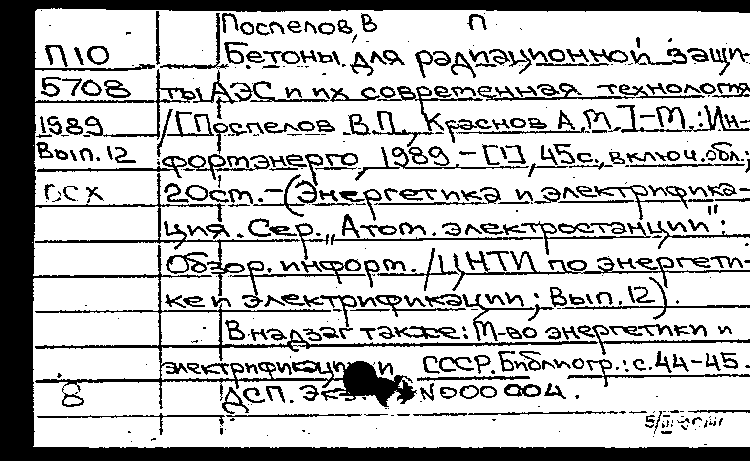 Поспелов, В П
П10 Бетоны для радиационной защи-
5708 ты АЭС и их современная технология
1989 /[Поспелов В.П., Краснов А.М.].-М.:Ин-
Вып.12 формэнерго, 1989.-[1],45с.,включ.обл.;
ОСХ 20см.-(Энергетика и электрифика-
ция. Сер. „Атом. электростанции":
Обзор. информ. /ЦНТИ по энергети-
ке и электрификации; Вып.12).
В надзаг также: М-во энергетики и
электрификации СССР. Библиогр.: с.44-45.
8 ДСП. Экз N000004.